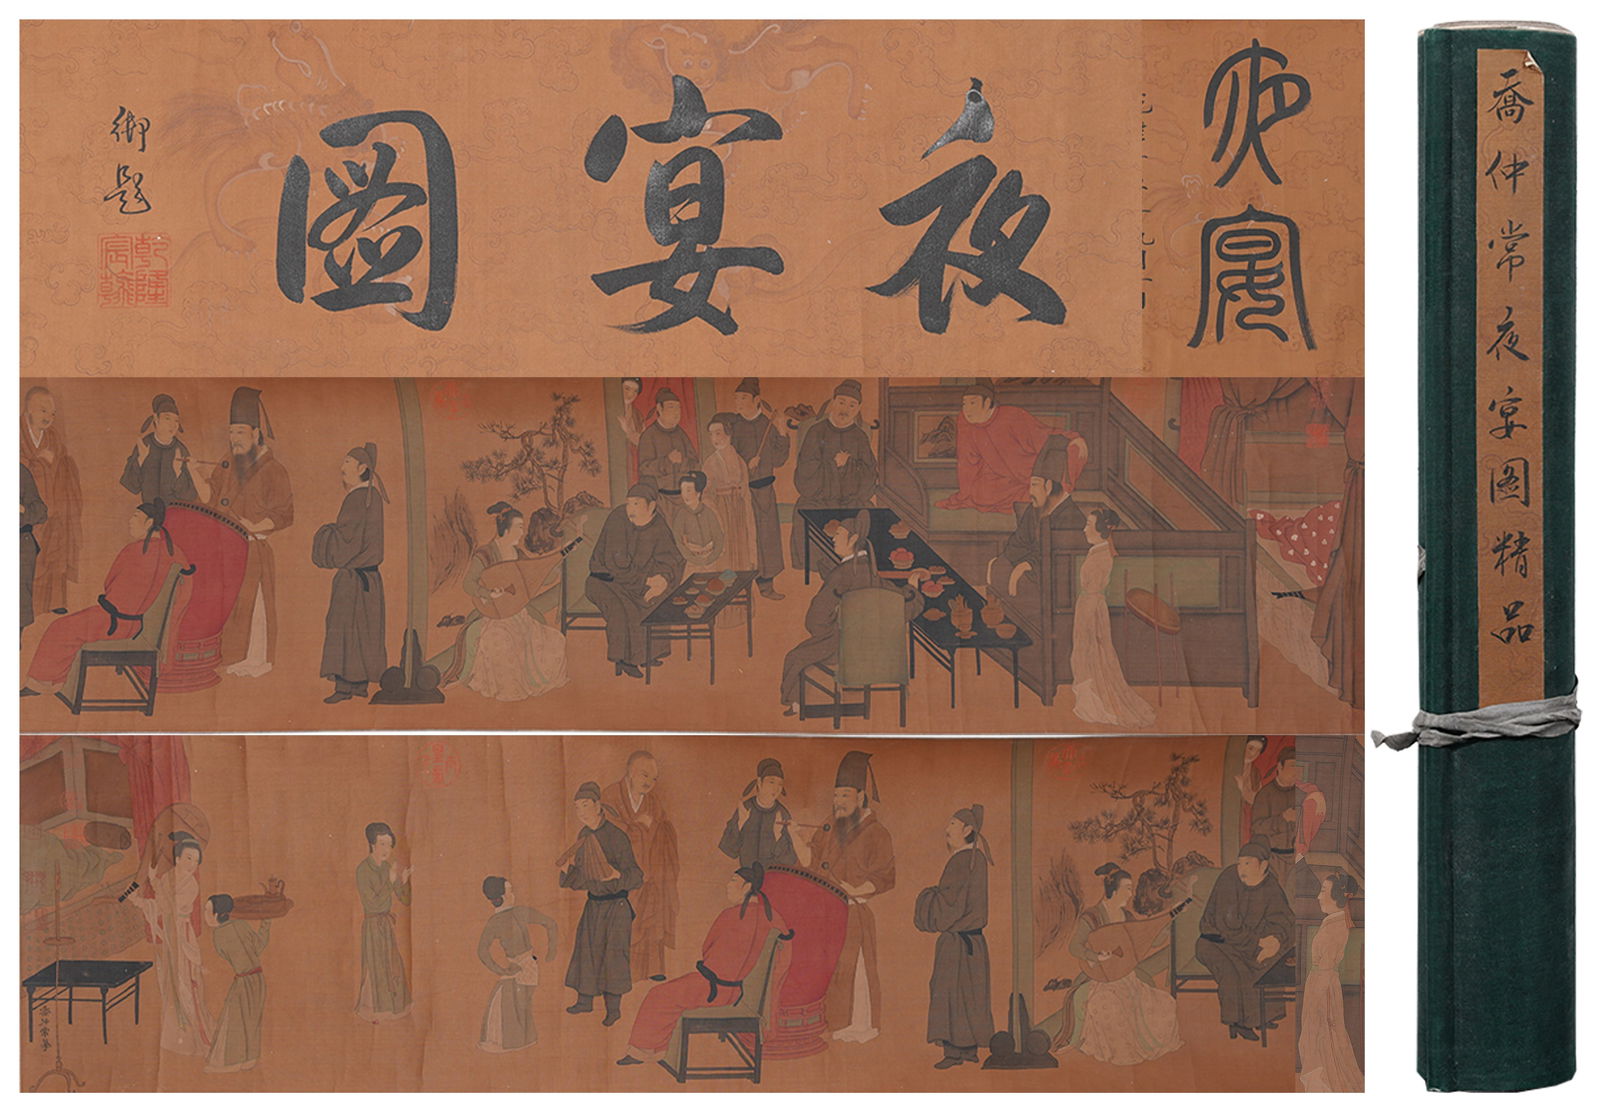 夜宴
夜宴圖
御題
乾隆宸翰
喬仲常夜宴圖精品